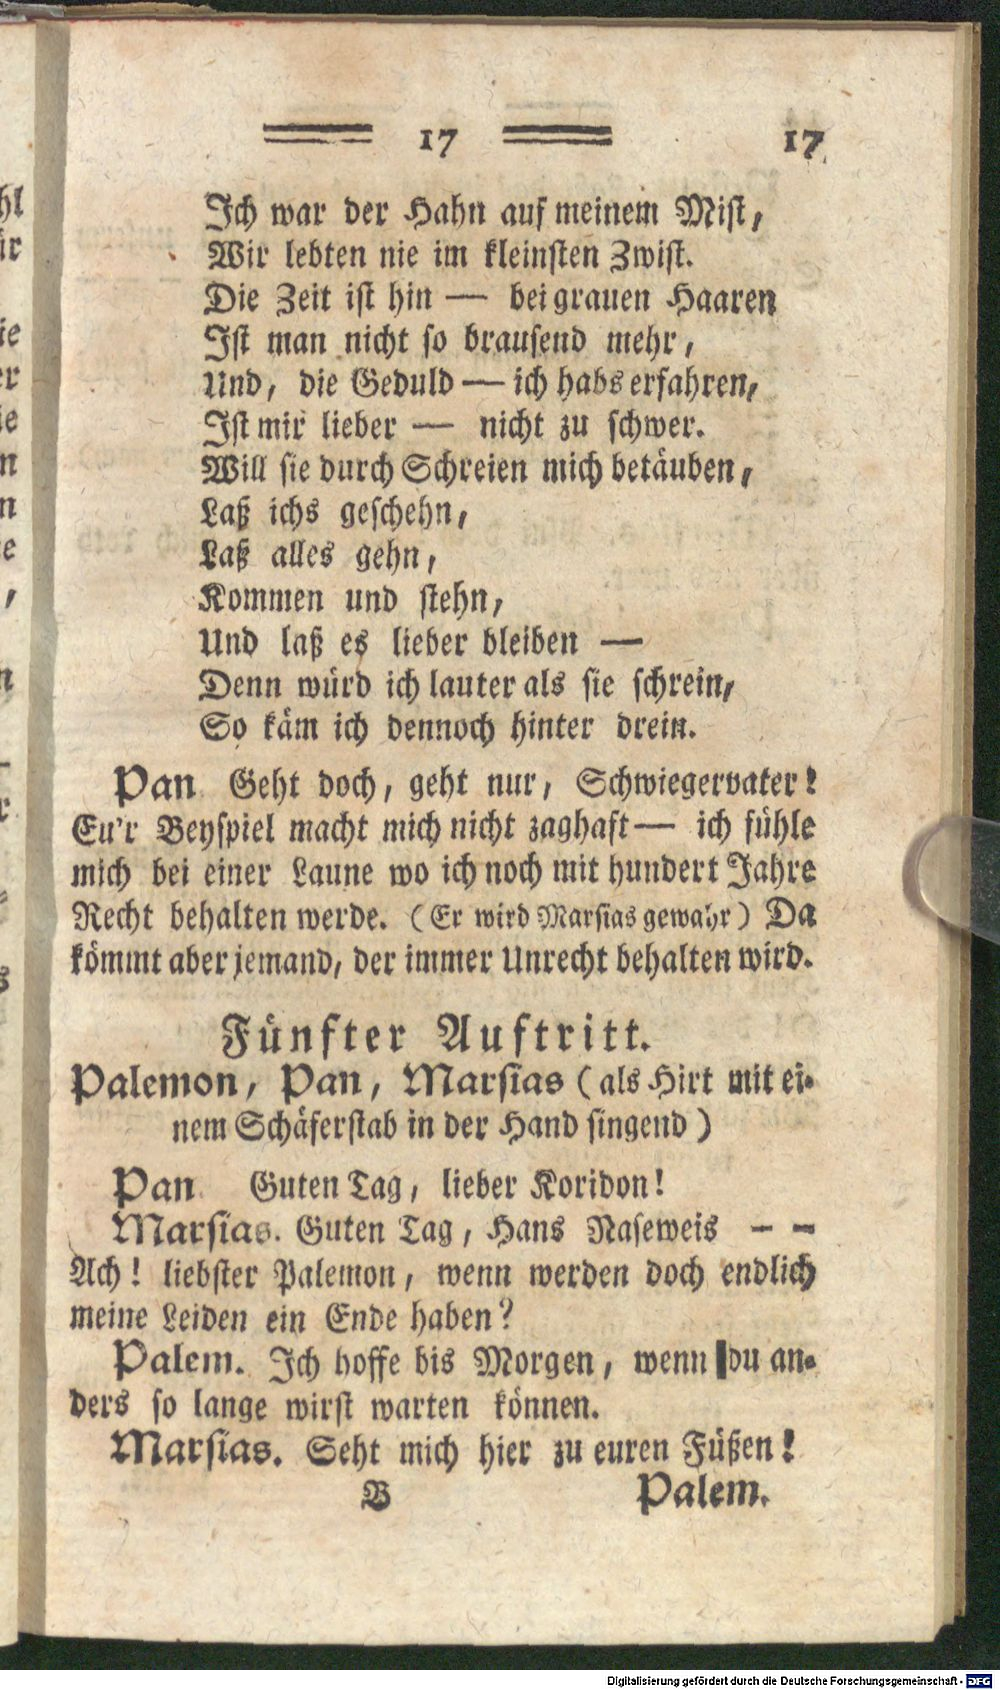 17 17
Ich war der Hahn auf meinem Mist,
Wir lebten nie im kleinsten Zwist.
Die Zeit ist hin — bei grauen Haaren
Ist man nicht so brausend mehr,
Und, die Geduld — ich habs erfahren,
Ist mir lieber — nicht zu schwer.
Will sie durch Schreien mich betäuben,
Laß ichs geschehn,
Laß alles gehn,
Kommen und stehn,
Und laß es lieber bleiben —
Denn würd ich lauter als sie schrein,
So käm ich dennoch hinter drein.
Pan Geht doch, geht nur, Schwiegervater!
Eu'r Beyspiel macht mich nicht zaghaft — ich fühle
mich bei einer Laune wo ich noch mit hundert Jahre
Recht behalten werde. (Er wird Marsias gewahr) Da
kömmt aber jemand, der immer Unrecht behalten wird.
Fünfter Auftritt.
Palemon, Pan, Marsias (als Hirt mit ei-
nem Schäferstab in der Hand singend)
Pan Guten Tag, lieber Koridon!
Marsias. Guten Tag, Hans Naseweis – –
Ach! liebster Palemon, wenn werden doch endlich
meine Leiden ein Ende haben?
Palem. Ich hoffe bis Morgen, wenn du an-
ders so lange wirst warten können.
Marsias. Seht mich hier zu euren Füßen!
B Palem.
Digitalisierung gefördert durch die Deutsche Forschungsgemeinschaft - DFG